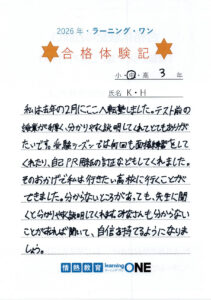 2026年・ラーニング・ワン
合格体験記
小・中・高 3年
氏名 K・H
私は去年の2月にここへ転塾しました。テスト前の
授業が手厚く、分かりやすく説明してくれてとてもありが
たいです。受験シーズンでは何回も面接練習をして
くれたり、自己PR用紙の訂正などもしてくれました。
そのおかげで私は行きたい高校に行くことが
できました。分からないところがあっても、先生に聞
くと分かりやすく説明してくれます。みなさんも分からない
ことがあれば聞いて、自信を持てるようになりま
しょう。
情熱教育 learning ONE